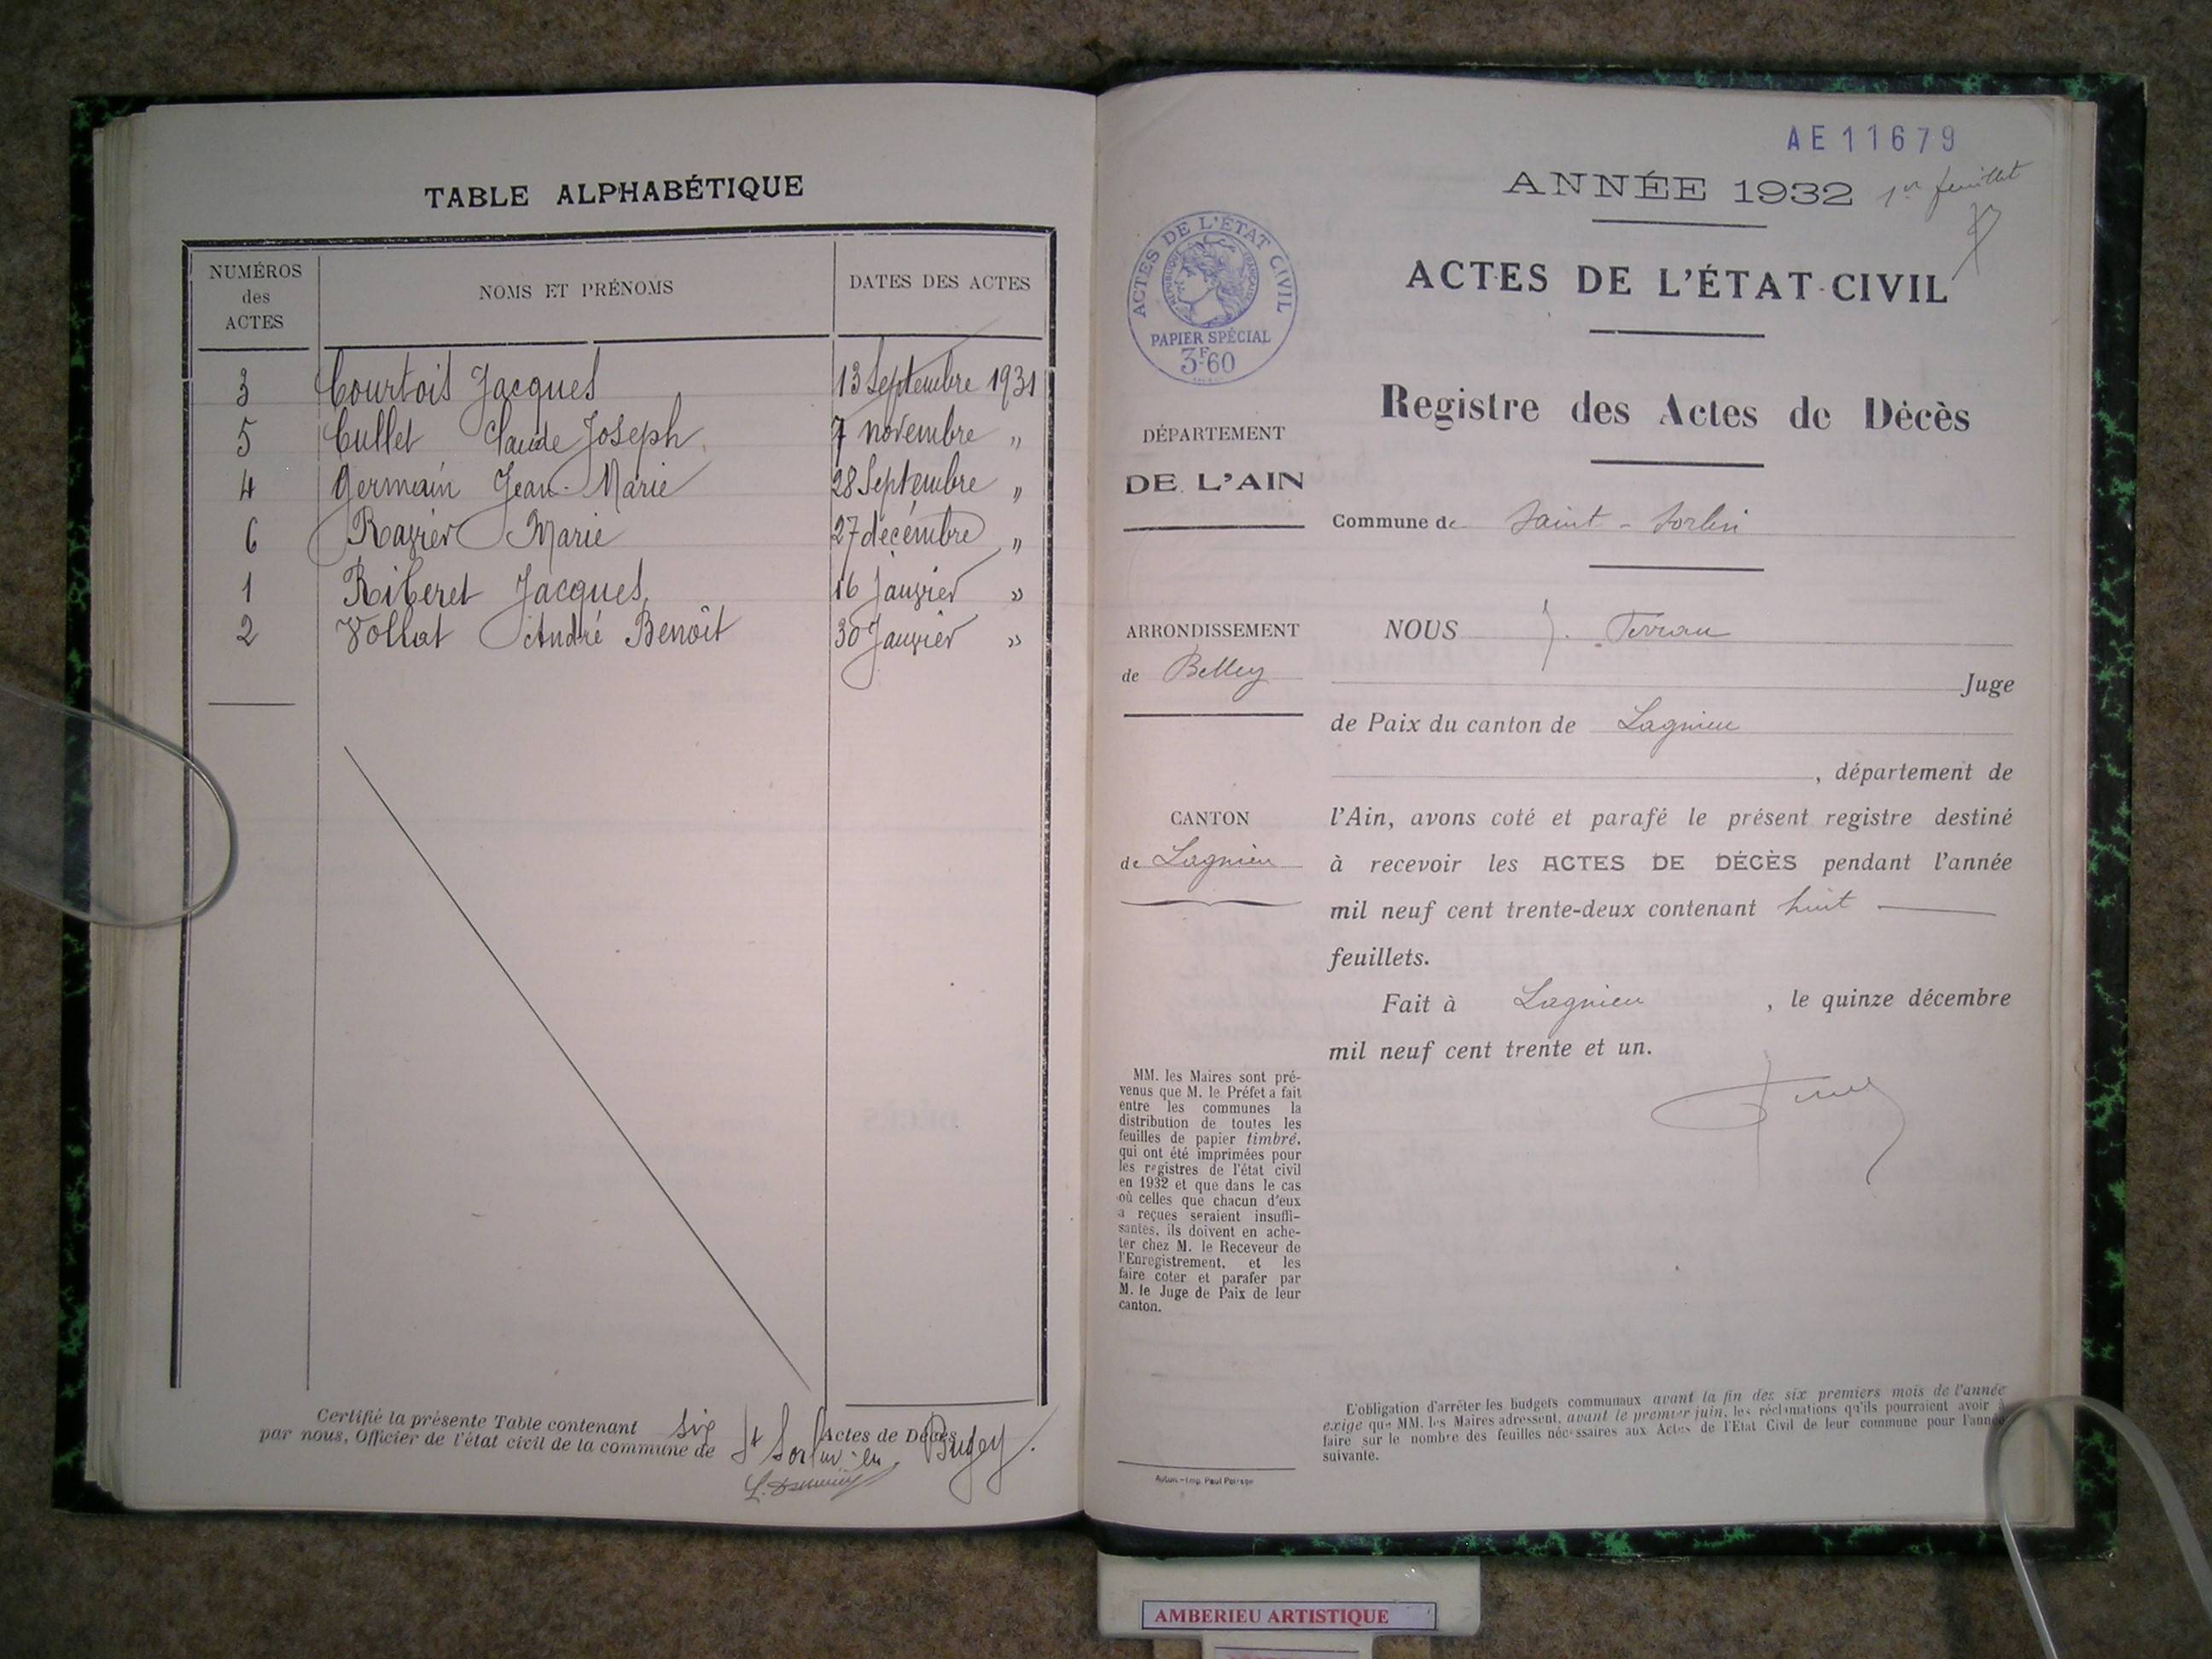 TABLE ALPHABÉTIQUE
NUMÉROS des ACTES NOMS ET PRÉNOMS DATES DES ACTES
3 Courtois Jacques 13 Septembre 1931
5 Cullet Claude Joseph 7 novembre "
4 Germain Jean-Marie 28 Septembre "
6 Ravier Marie 27 décembre "
1 Riberet Jacques 16 Janvier "
2 Vollat André Benoît 30 Janvier "
Certifié la présente Table contenant six Actes de Décès
par nous, Officier de l'état civil de la commune de St Sorlin en Bugey.
AE11679
ANNÉE 1932 1er feuillet
ACTES DE L'ÉTAT CIVIL
RÉPUBLIQUE FRANÇAISE
PAPIER SPÉCIAL
3F60
ACTES DE L'ÉTAT-CIVIL
Registre des Actes de Décès
DÉPARTEMENT
DE L'AIN
Commune de Saint-Sorlin
ARRONDISSEMENT
de Belley
CANTON
de Lagnieu
NOUS J. Ferran
Juge
de Paix du canton de Lagnieu
, département de
l'Ain, avons coté et parafé le présent registre destiné
à recevoir les ACTES DE DÉCÈS pendant l'année
mil neuf cent trente-deux contenant huit
feuillets.
Fait à Lagnieu, le quinze décembre
mil neuf cent trente et un.
MM. les Maires sont pré-
venus que M. le Préfet a fait
entre les communes la
distribution de toutes les
feuilles de papier timbré,
qui ont été imprimées pour
les registres de l'état civil
en 1932 et que dans le cas
où celles que chacun d'eux
a reçues seraient insuffi-
santes, ils doivent en ache-
ter chez M. le Receveur de
l'Enregistrement, et les
faire coter et parafer par
M. le Juge de Paix de leur
canton.
L'obligation d'arrêter les budgets communaux avant la fin des six premiers mois de l'année
exige que MM. les Maires adressent, avant le premier juin, les réclamations qu'ils pourraient avoir à
faire sur le nombre des feuilles nécessaires aux Actes de l'Etat Civil de leur commune pour l'année
suivante.
Autun.-Imp. Paul Parrage
AMBERIEU ARTISTIQUE